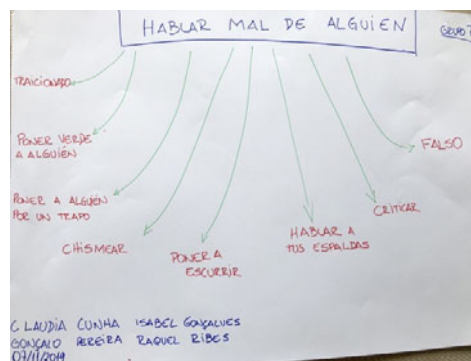 HABLAR MAL DE ALGUIEN
TRAICIONADO
PONER VERDE
A ALGUIÉN
PONER A ALGUÉN
POR UN TRAPO
CHISMEAR
PONER A
ESCURRIR
HABLAR A
TUS ESPALDAS
CRITICAR
FALSO
CLAUDIA CUNHA ISABEL GONÇALVES
GONÇALO PEREIRA RAQUEL RIBES
07/11/2019